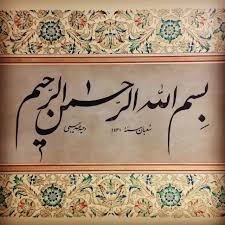 بِسم الله الرّحمن الرّحیم
شعبان سنة ۱۴۳۱